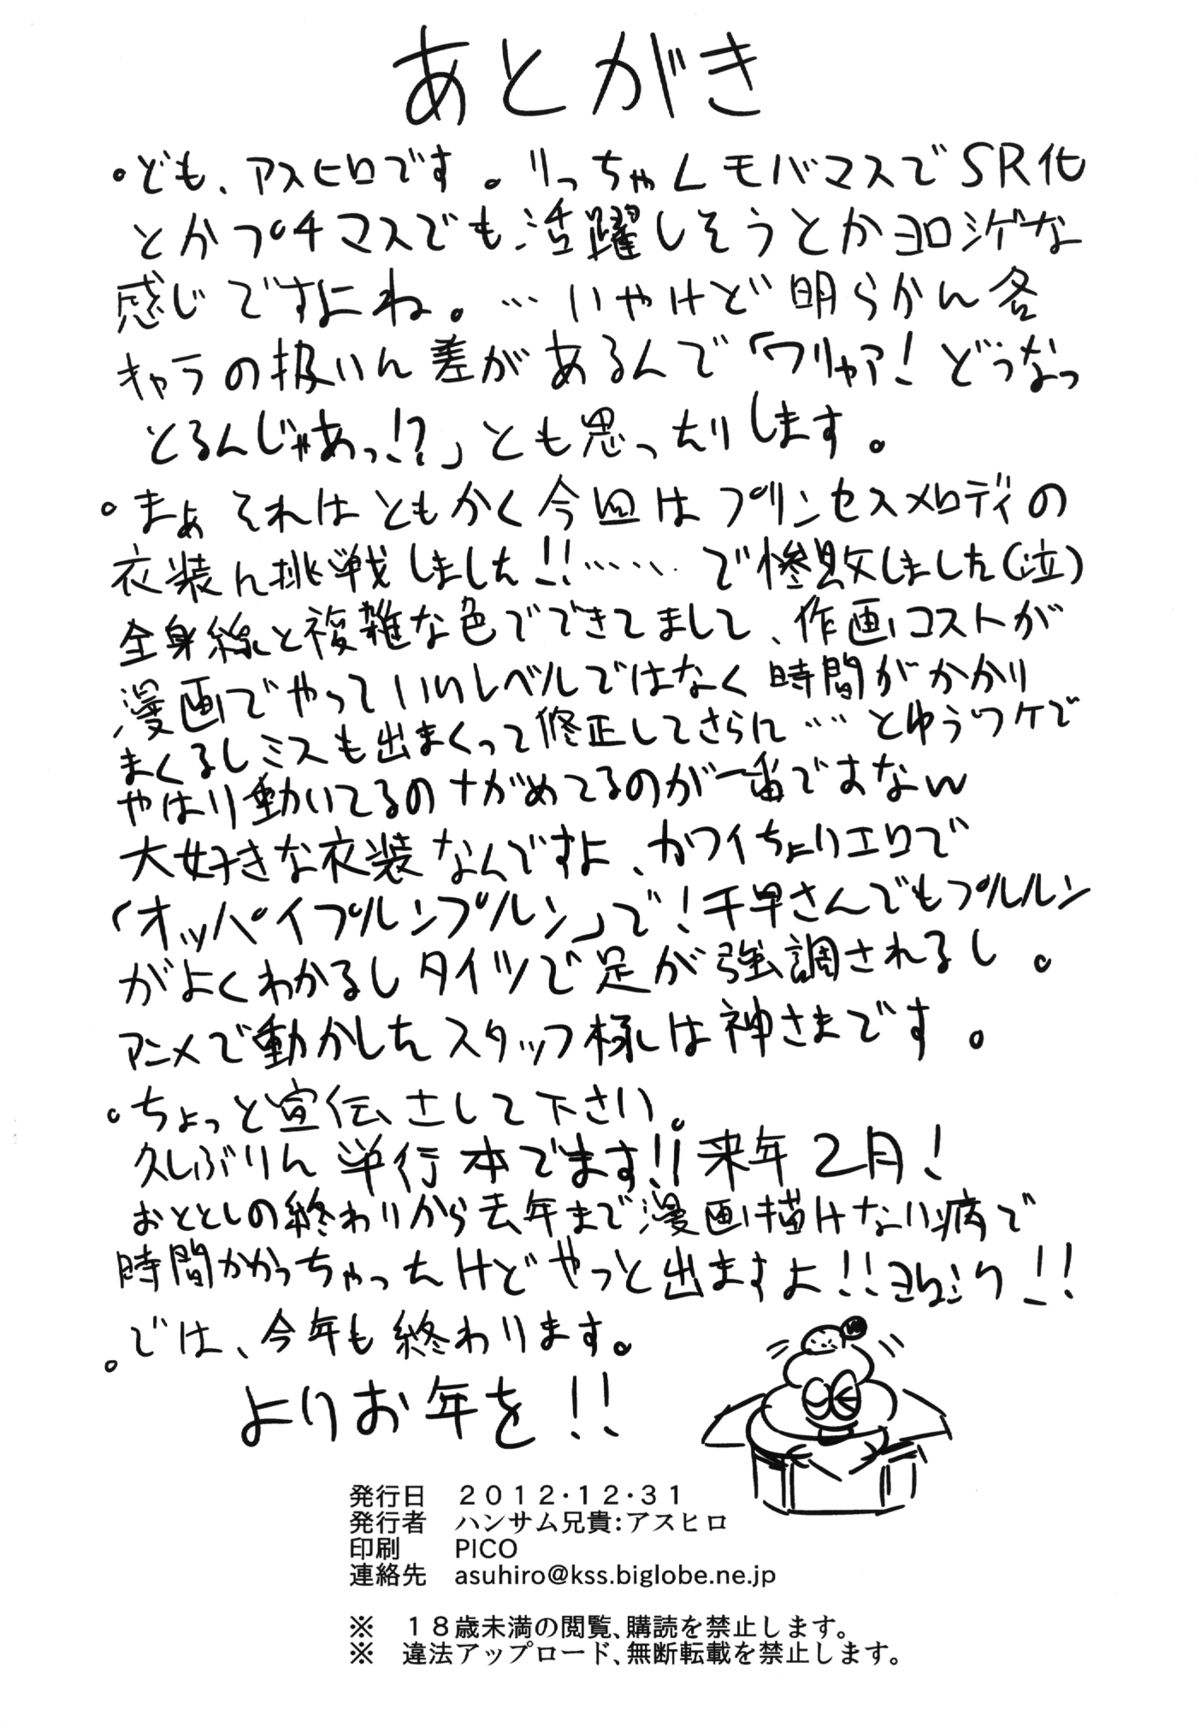 あとがき
。ども、アスヒロです。りっちゃんモバマスでSR化
とかプチマスでも活躍しそうとかヨロシゲな
感じですよね。…いやけど明らかに各
キャラの扱いに差があるんで「ワリャア!どうなっ
とるんじゃあっ!?」とも思ったりします。
。まぁそれはともかく今回はプリンセスメロディの
衣装に挑戦しました!!……で惨敗しました(泣)
全身線と複雑な色でできてまして、作画コストが
漫画でやっていいレベルではなく時間がかかり
まくるしミスも出まくって修正してさらに……とゆうワケで
やはり動いてるのナガめてるのが一番ですなw
大好きな衣装なんですよ、カワイちょりエロで
「オッパイプルンプルン」で!千早さんでもプルルン
がよくわかるしタイツで足が強調されるし。
アニメで動かしたスタッフ様は神さまです。
。ちょっと宣伝さして下さい。
久しぶりに単行本でます!!来年2月!
おととしの終わりから去年まで漫画描けない病で
時間かかっちゃったけどやっと出ますよ!!ヨロシク!!
。では、今年も終わります。
よりお年を!!
発行日 2012・12・31
発行者 ハンサム兄貴:アスヒロ
印刷 PICO
連絡先 asuhiro@kss.biglobe.ne.jp
※ 18歳未満の閲覧、購読を禁止します。
※ 違法アップロード、無断転載を禁止します。